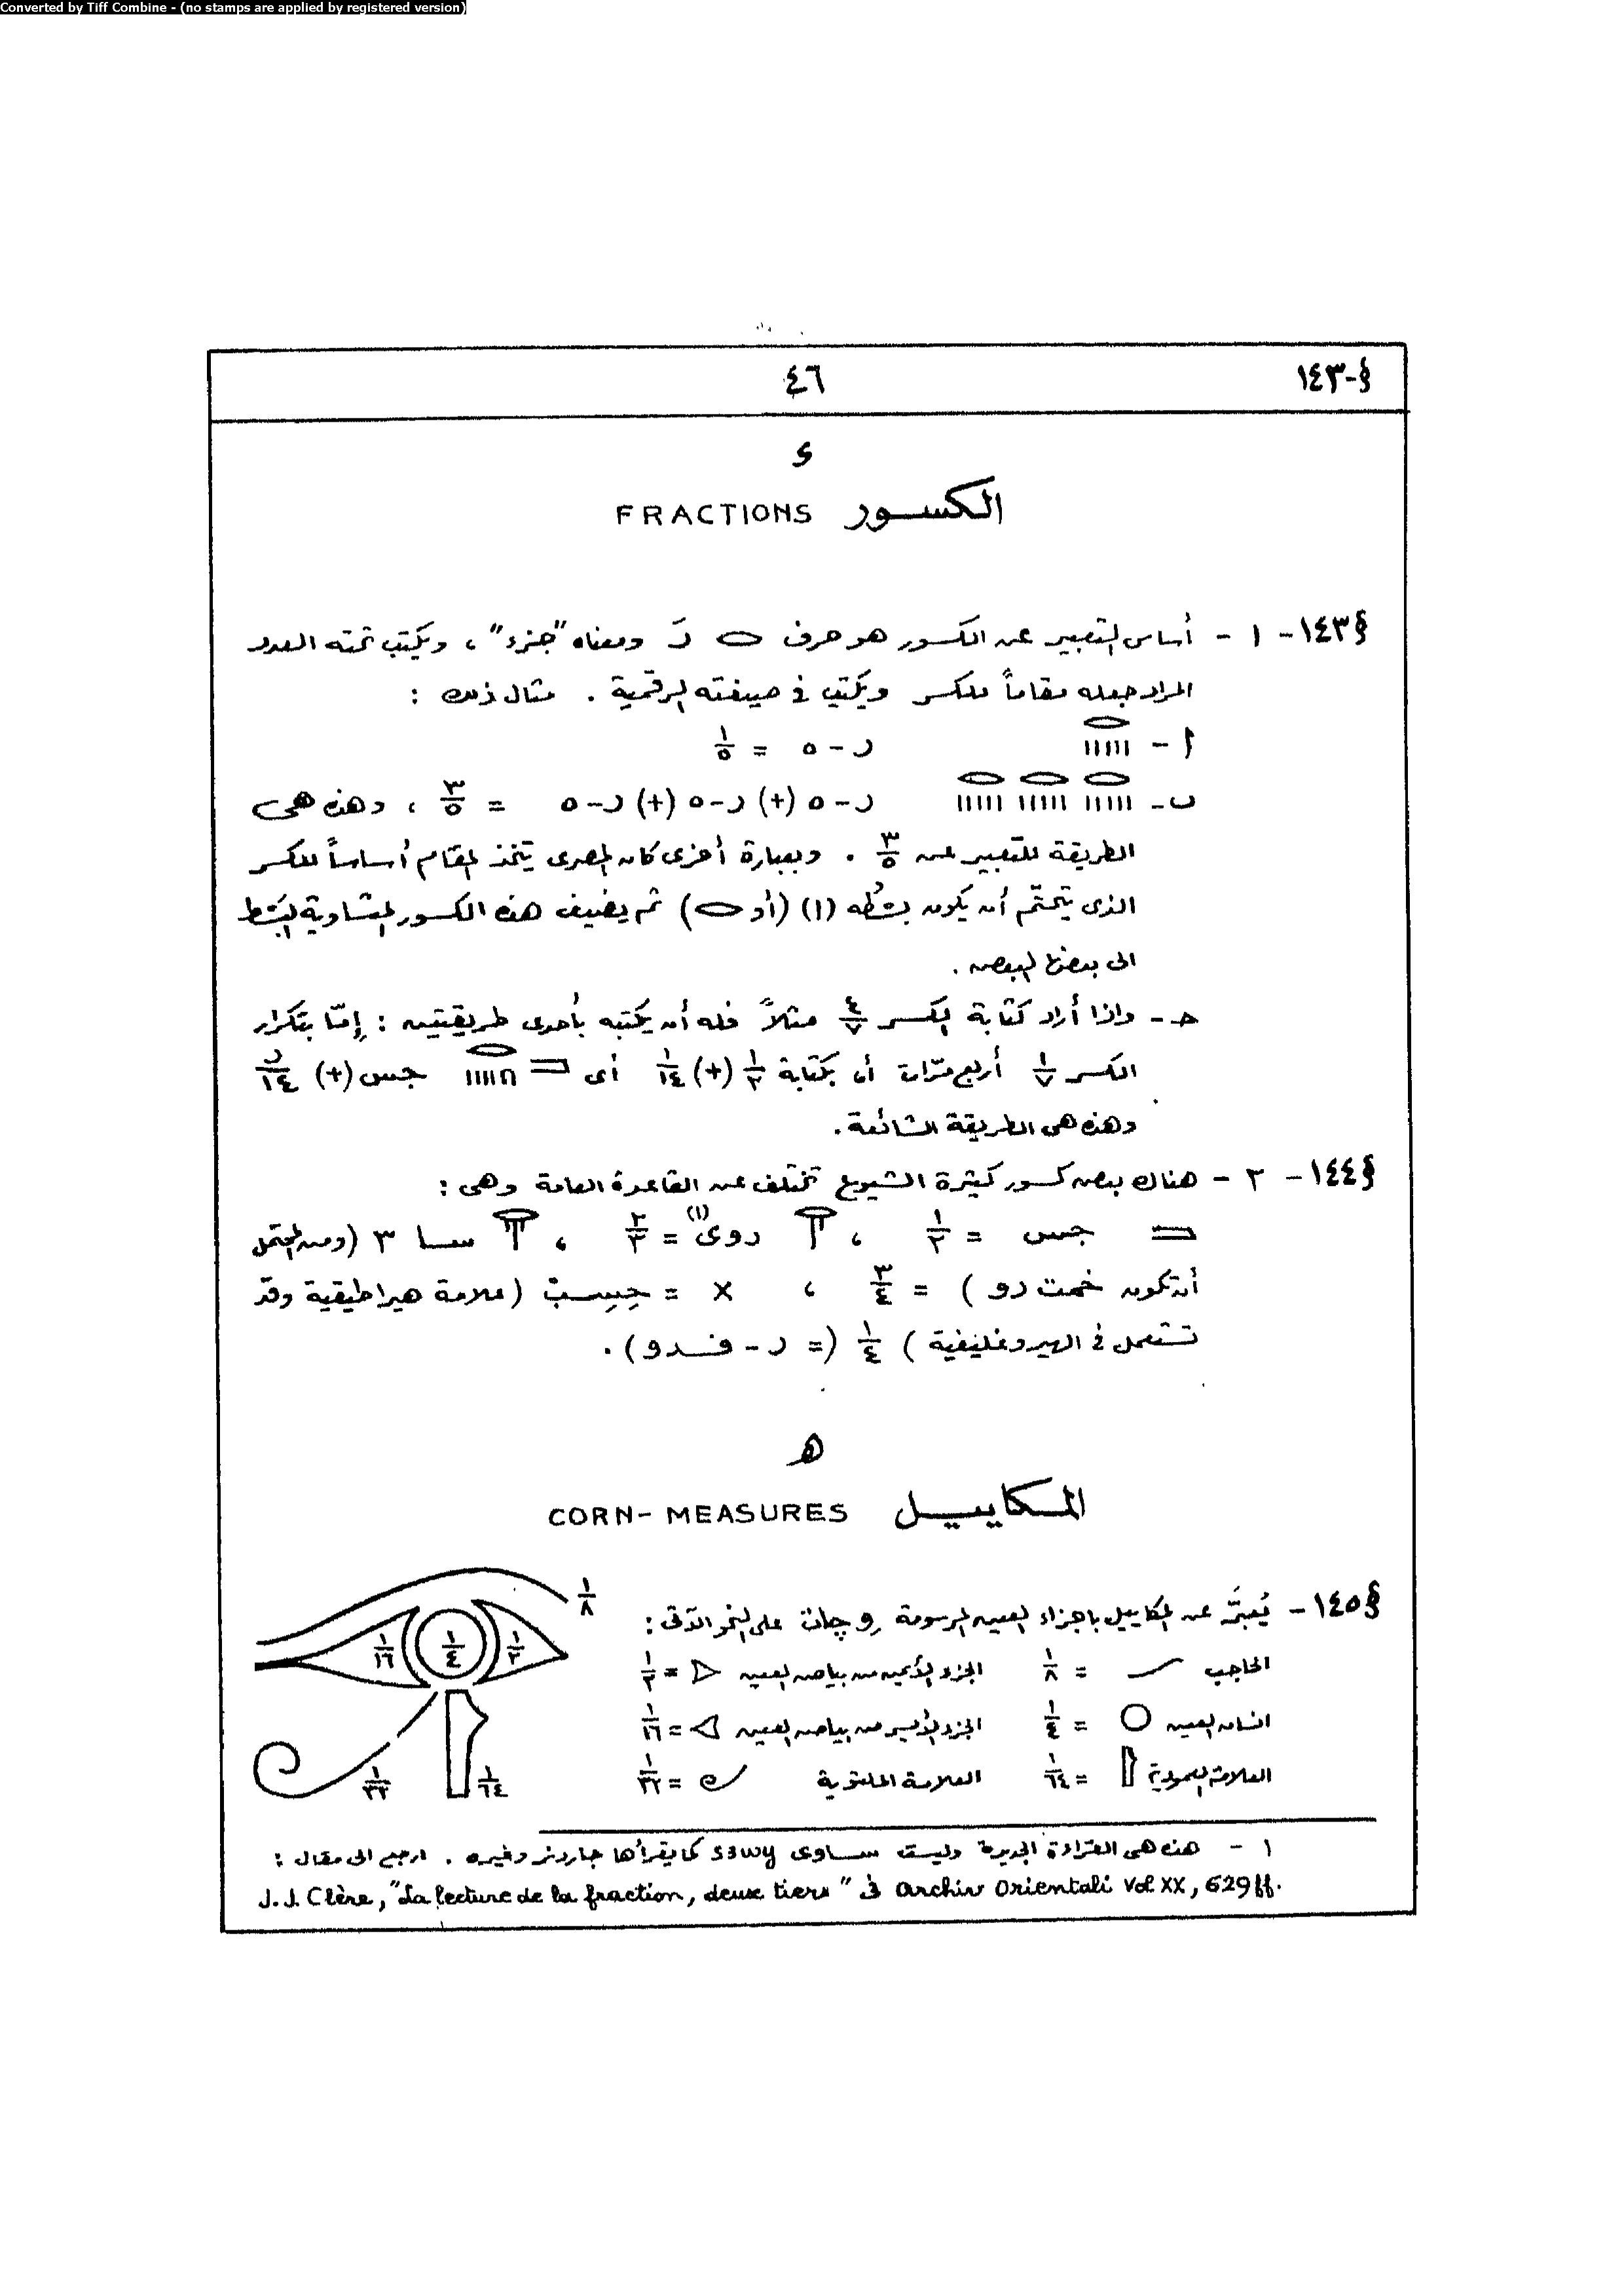 Converted by Tiff Combine - (no stamps are applied by registered version)
§-١٤٣
٤٦
د
الكسور FRACTIONS
§١٤٣- ١ - أساس التعبير عن الكسور هو حرف رَ ومعناه "جزء" ، ويكتب تحته العدد
المراد جعله مقاماً للكسر ويكتب في صيغته الرقمية . مثال ذلك :
أ - ر - ٥ = ١/٥
ب - ر - ٥ (+) ر - ٥ (+) ر - ٥ = ٣/٥ ، وهذه هى
الطريقة للتعبير عن ٣/٥ . وبعبارة أخرى كان المصرى يتخذ المقام أساساً للكسر
الذى يتحتّم أن يكون بسْطُه (١) (أو ) ثم يضيف هذه الكسور المتساوية البَسْط
الى بعضها البعض .
حـ - واذا أراد كتابة الكسر ٤/٧ مثلاً فله أن يكتبه بأحدى طريقتين : إمّا بتكرار
الكسر ١/٧ أربع مرّات أو بكتابة ١/٢ (+) ١/١٤ أى جس (+) ر/١٤
وهذه هى الطريقة الشائعة .
§١٤٤- ٢ - هناك بعض كسور كثيرة الشيوع تختلف عن القاعدة العامة وهى :
جس = ١/٢ ، روى(١) = ٢/٣ ، سا ٣ (ومن المحتمل
أن تكون خمت رو ) = ٣/٤ ، × = حِسِبْ (علامة هيراطيقية وقد
تستعمل في الهيروغليفية ) ١/٤ (= ر - فدو) .
ه
المكاييل CORN-MEASURES
§١٤٥- يُعبَّر عن المكاييل باجزاء العين المرسومة على النحو الآتى :
الحاجب = ١/٨ الجزء الأيمن من بياض العين = ١/٢
انسان العين = ١/٤ الجزء الأيسر من بياض العين = ١/١٦
العلامة العمودية = ١/٦٤ العلامة الملتوية = ١/٣٢
١/٨
١/١٦ ١/٤ ١/٢
١/٣٢ ١/٦٤
١ - هذه هى القراءة الجديدة وليست ساوى s3wy كما يقرأها جاردنر وغيره . ارجع الى مقال :
J. J. Clère, "La lecture de la fraction, deux tiers" في Archiv Orientali Vol XX, 629 ff.